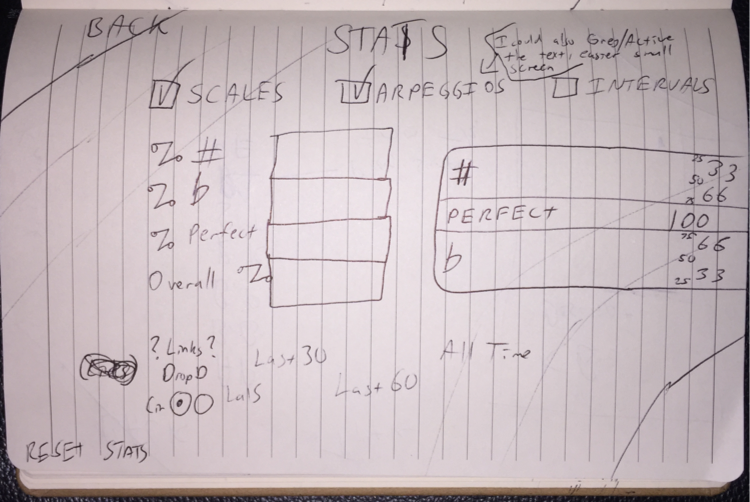 BACK
STATS
I could also Grey/Active
the text, easier small
screen
SCALES
ARPEGGIOS
INTERVALS
% #
% b
% Perfect
Overall %
# 25 33
50 66
PERFECT 75 100
b 75 66
50
25 33
? Links?
DropD
Last 30
All Time
Last 60
RESET STATS